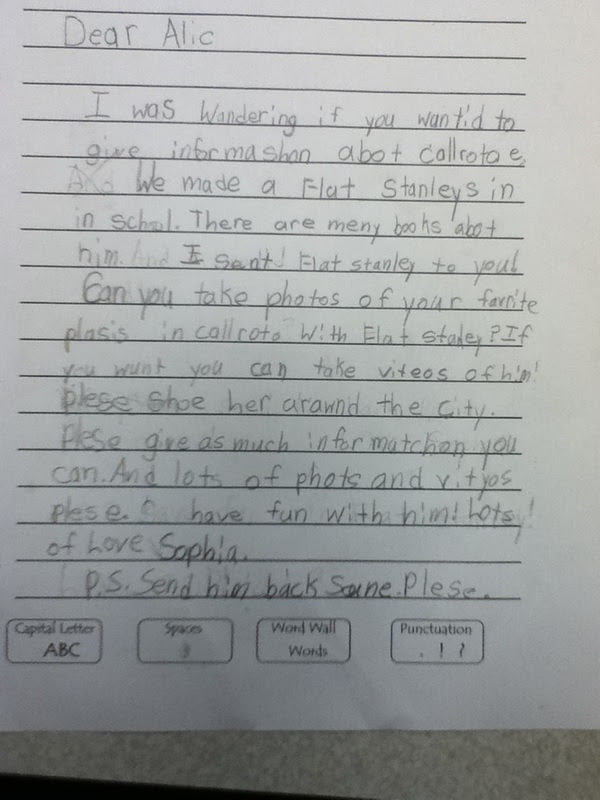 Dear Alic
I was Wandering if you want'd to
give informashon abot callrotoe.
And We made a Flat Stanleys in
in school. There are meny books abot
him. And I sent! Flat stanley to you!
Can you take photos of your favrite
plasis in callroto With Flat staley? If
you wunt you can take viteos of him!
plese shoe her arawnd the city.
Plese give as much informatchon you
can. And lots of phots and vityos
plese. have fun with him! Lots
of Love Sophia.
P.S. Send him back Soune. Plese.
Capital Letter
ABC
Spaces
Word Wall
Words
Punctuation
. ! ?